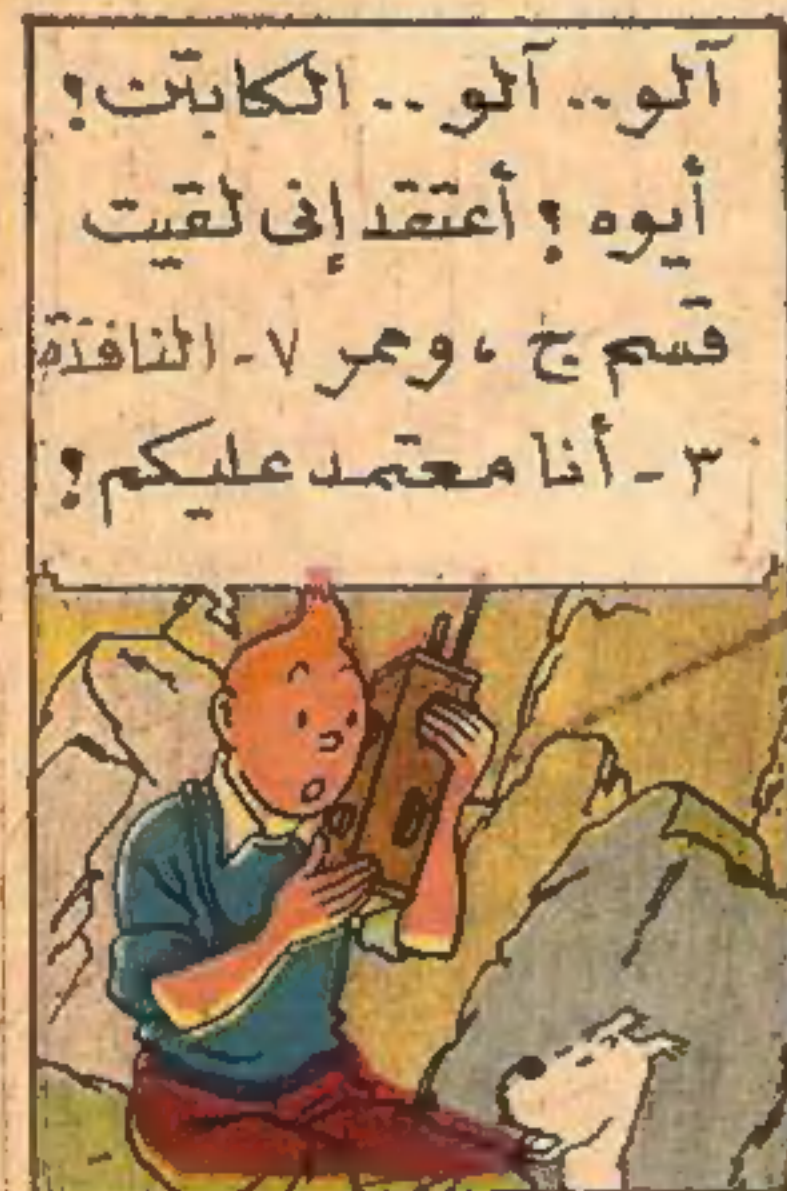 آلو.. آلو.. الكابتن!
أيوه! أعتقد إنى لقيت
قسم ج ، وممر ٧ - النافذة
٣ - أنا معتمد عليكم!